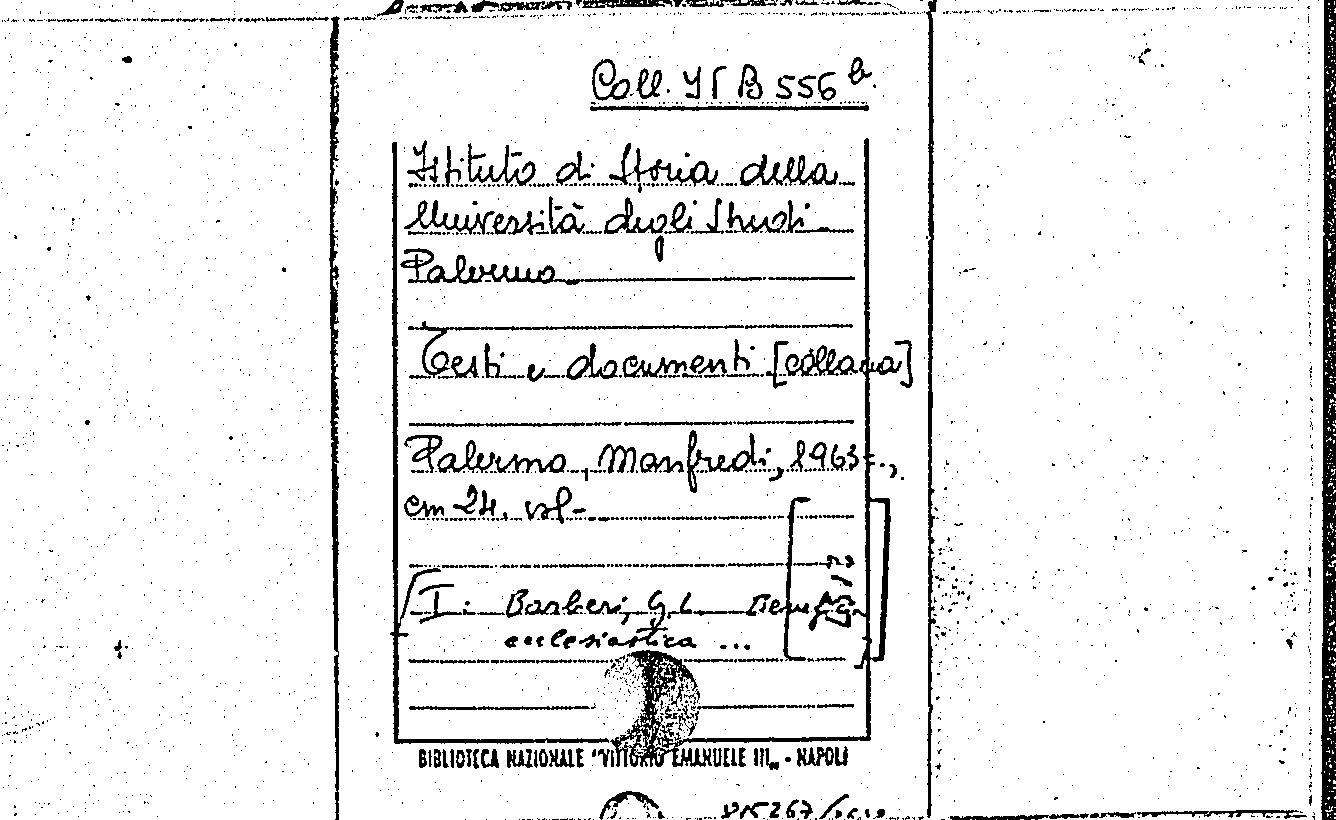 Coll. IS B 556 b.
Istituto di Storia della
Università degli Studi -
Palermo -
Testi e documenti [collana]
Palermo, Manfredi, 1963- .,
cm 24. vol-
[I: Barberi, G.L. Beneficia
ecclesiastica ...]
BIBLIOTECA NAZIONALE "VITTORIO EMANUELE III„ - NAPOLI
815267/